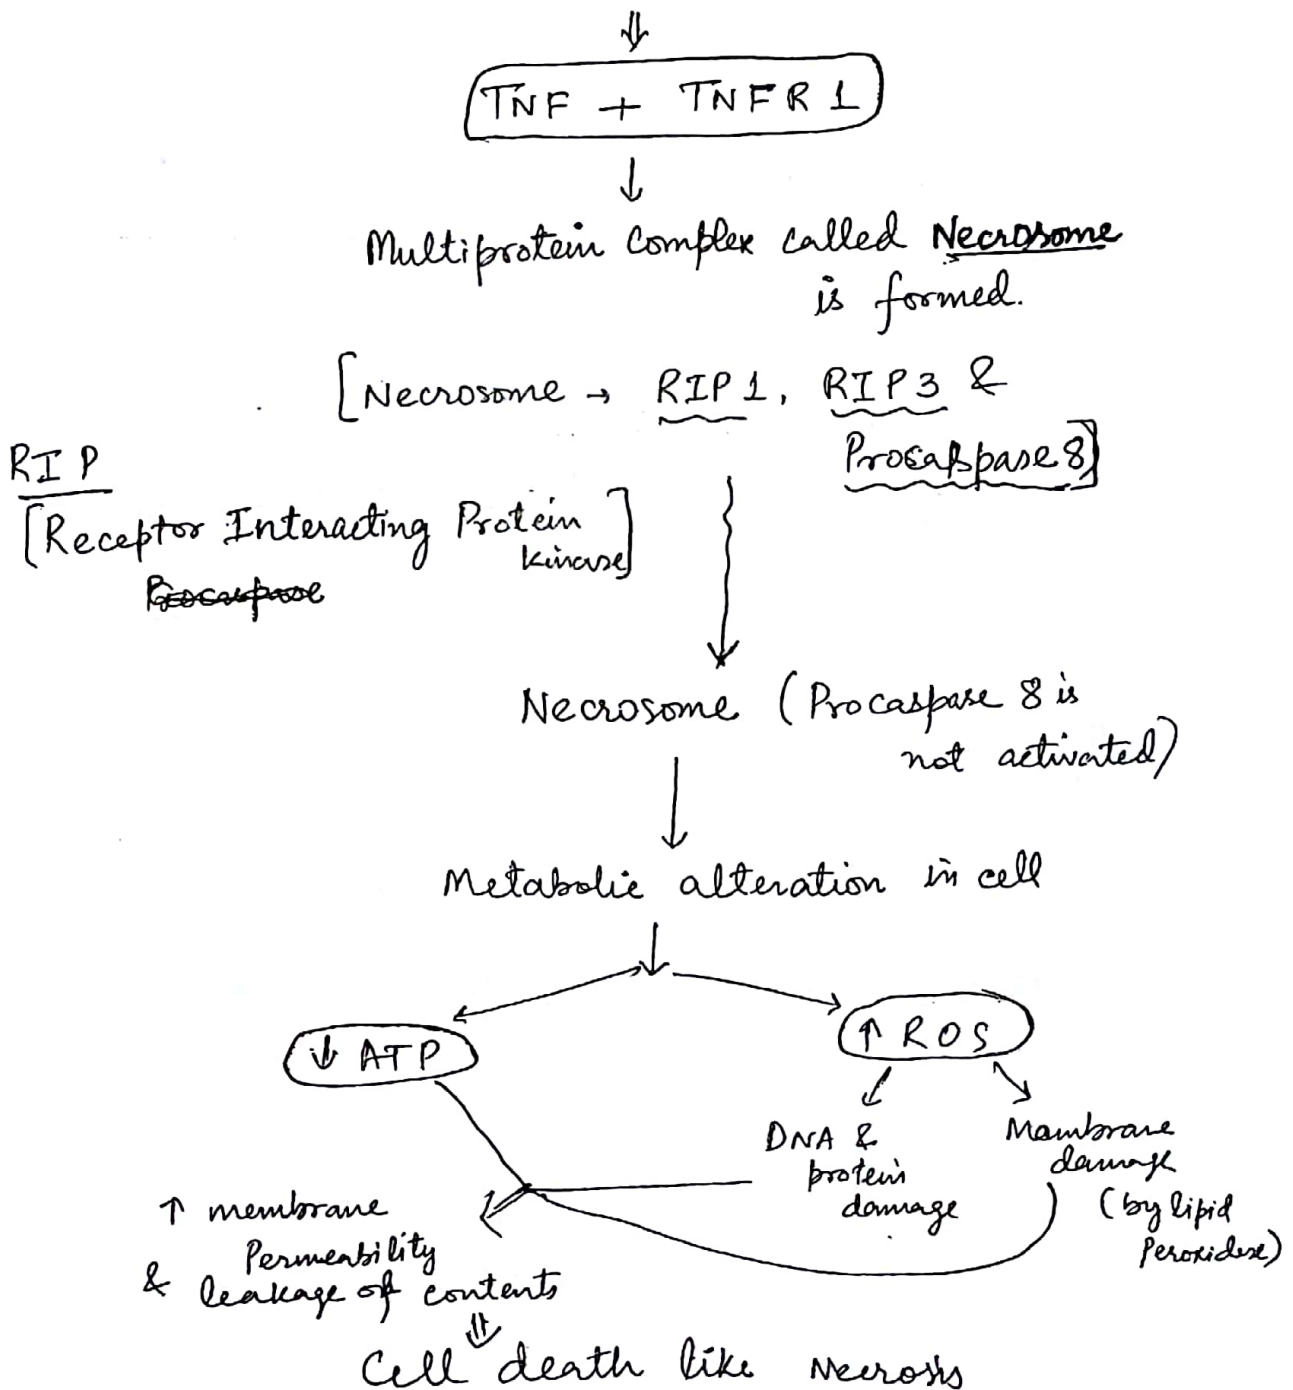 ⇓
TNF + TNFR1
↓
Multiprotein Complex called Necrosome
is formed.
[Necrosome → RIP1, RIP3 &
Procaspase 8]
RIP
[Receptor Interacting Protein
kinase]
Procaspase
Necrosome (Procaspase 8 is
not activated)
Metabolic alteration in cell
↓ ATP
↑ ROS
DNA &
protein
damage
Mambrane
damage
(by lipid
Peroxidase)
↑ membrane
Permeability
& leakage of contents
⇓
Cell death like Necrosis